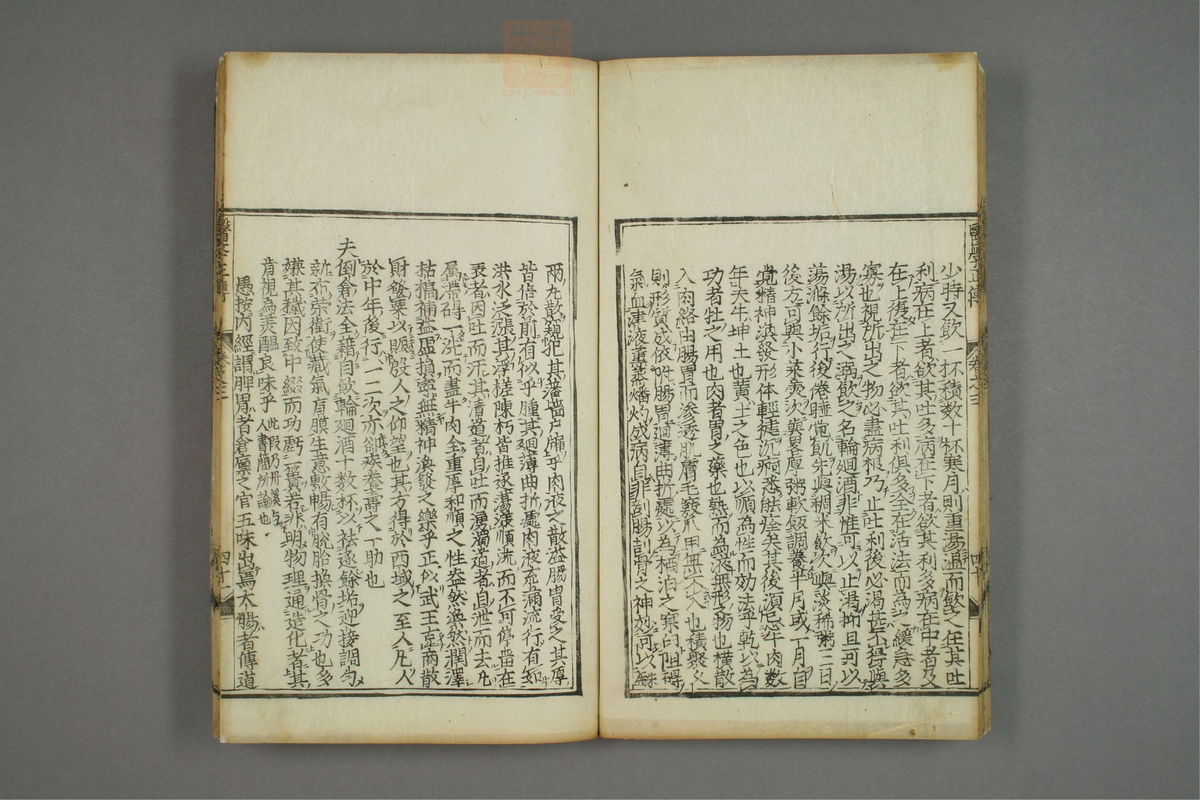 醫學正傳
卷之三
四十
少時又飲一杯積數十杯寒月則重湯溫而飲之任其吐
利病在上者欲其吐多病在下者欲其利多病在中者乃
在上復在下者欲其吐利俱多全在活法而為之緩急多
寡也視所出之物必盡病根乃止吐利後必渴甚不得與
湯以所出之溺飲之名輪迴酒非惟可以止渴抑且可以
蕩滌餘垢行後倦睡覺飢先與稠米飲次與淡稀粥三日
後方可與小菜羹次與畧厚粥軟飯調養半月或一月自
覺精神渙發形体輕徤沉痾悉能痊矣其後須忌牛肉數
年夫牛坤土也黄土之色也以順為性而効法乎乾以為
功者牡之用也肉者胃之藥也熟而為液無形之物也橫散
入肉絡由腸胃而滲透肌膚毛竅爪甲無不入也積聚久
則形質成依附腸胃迴薄曲折處以為栖泊之窠臼阻碍
氣血津液熏蒸燔灼成病自非剖腸刮骨之神妙可以
兩丸散窺犯其藩墻户牖乎肉液之散溢腸胃受之其厚
皆倍於前有似乎腫其迴薄曲折處肉液充滿流行有如
洪水之漲其浮槎陳朽皆推逐蕩漾順流而不可停畱在
表者因吐而汗其清道者自吐而湧濁道者自泄而去凡
属滯碍一洗而盡牛肉全重厚和順之性盎然渙然潤澤
枯槁補益虚損寧無精神渙發之樂乎正似武王克商散
財發粟以賑殷人之仰望也其方得於西域之至人凡人
於中年後行一二次亦却疾養壽之一助也
夫倒倉法全藉自飲輪迴酒十數杯以祛逐餘垢迎接調匀
新布榮衛使藏氣肓膜生意敷暢有脫胎換骨之功也多
嫌其穢因致中綴而功虧一簣若非明物理通造化者其
肯視為美醞良味乎
愚按内經謂脾胃者倉廪之官五味出焉大腸者傳道
卷之三
四十一